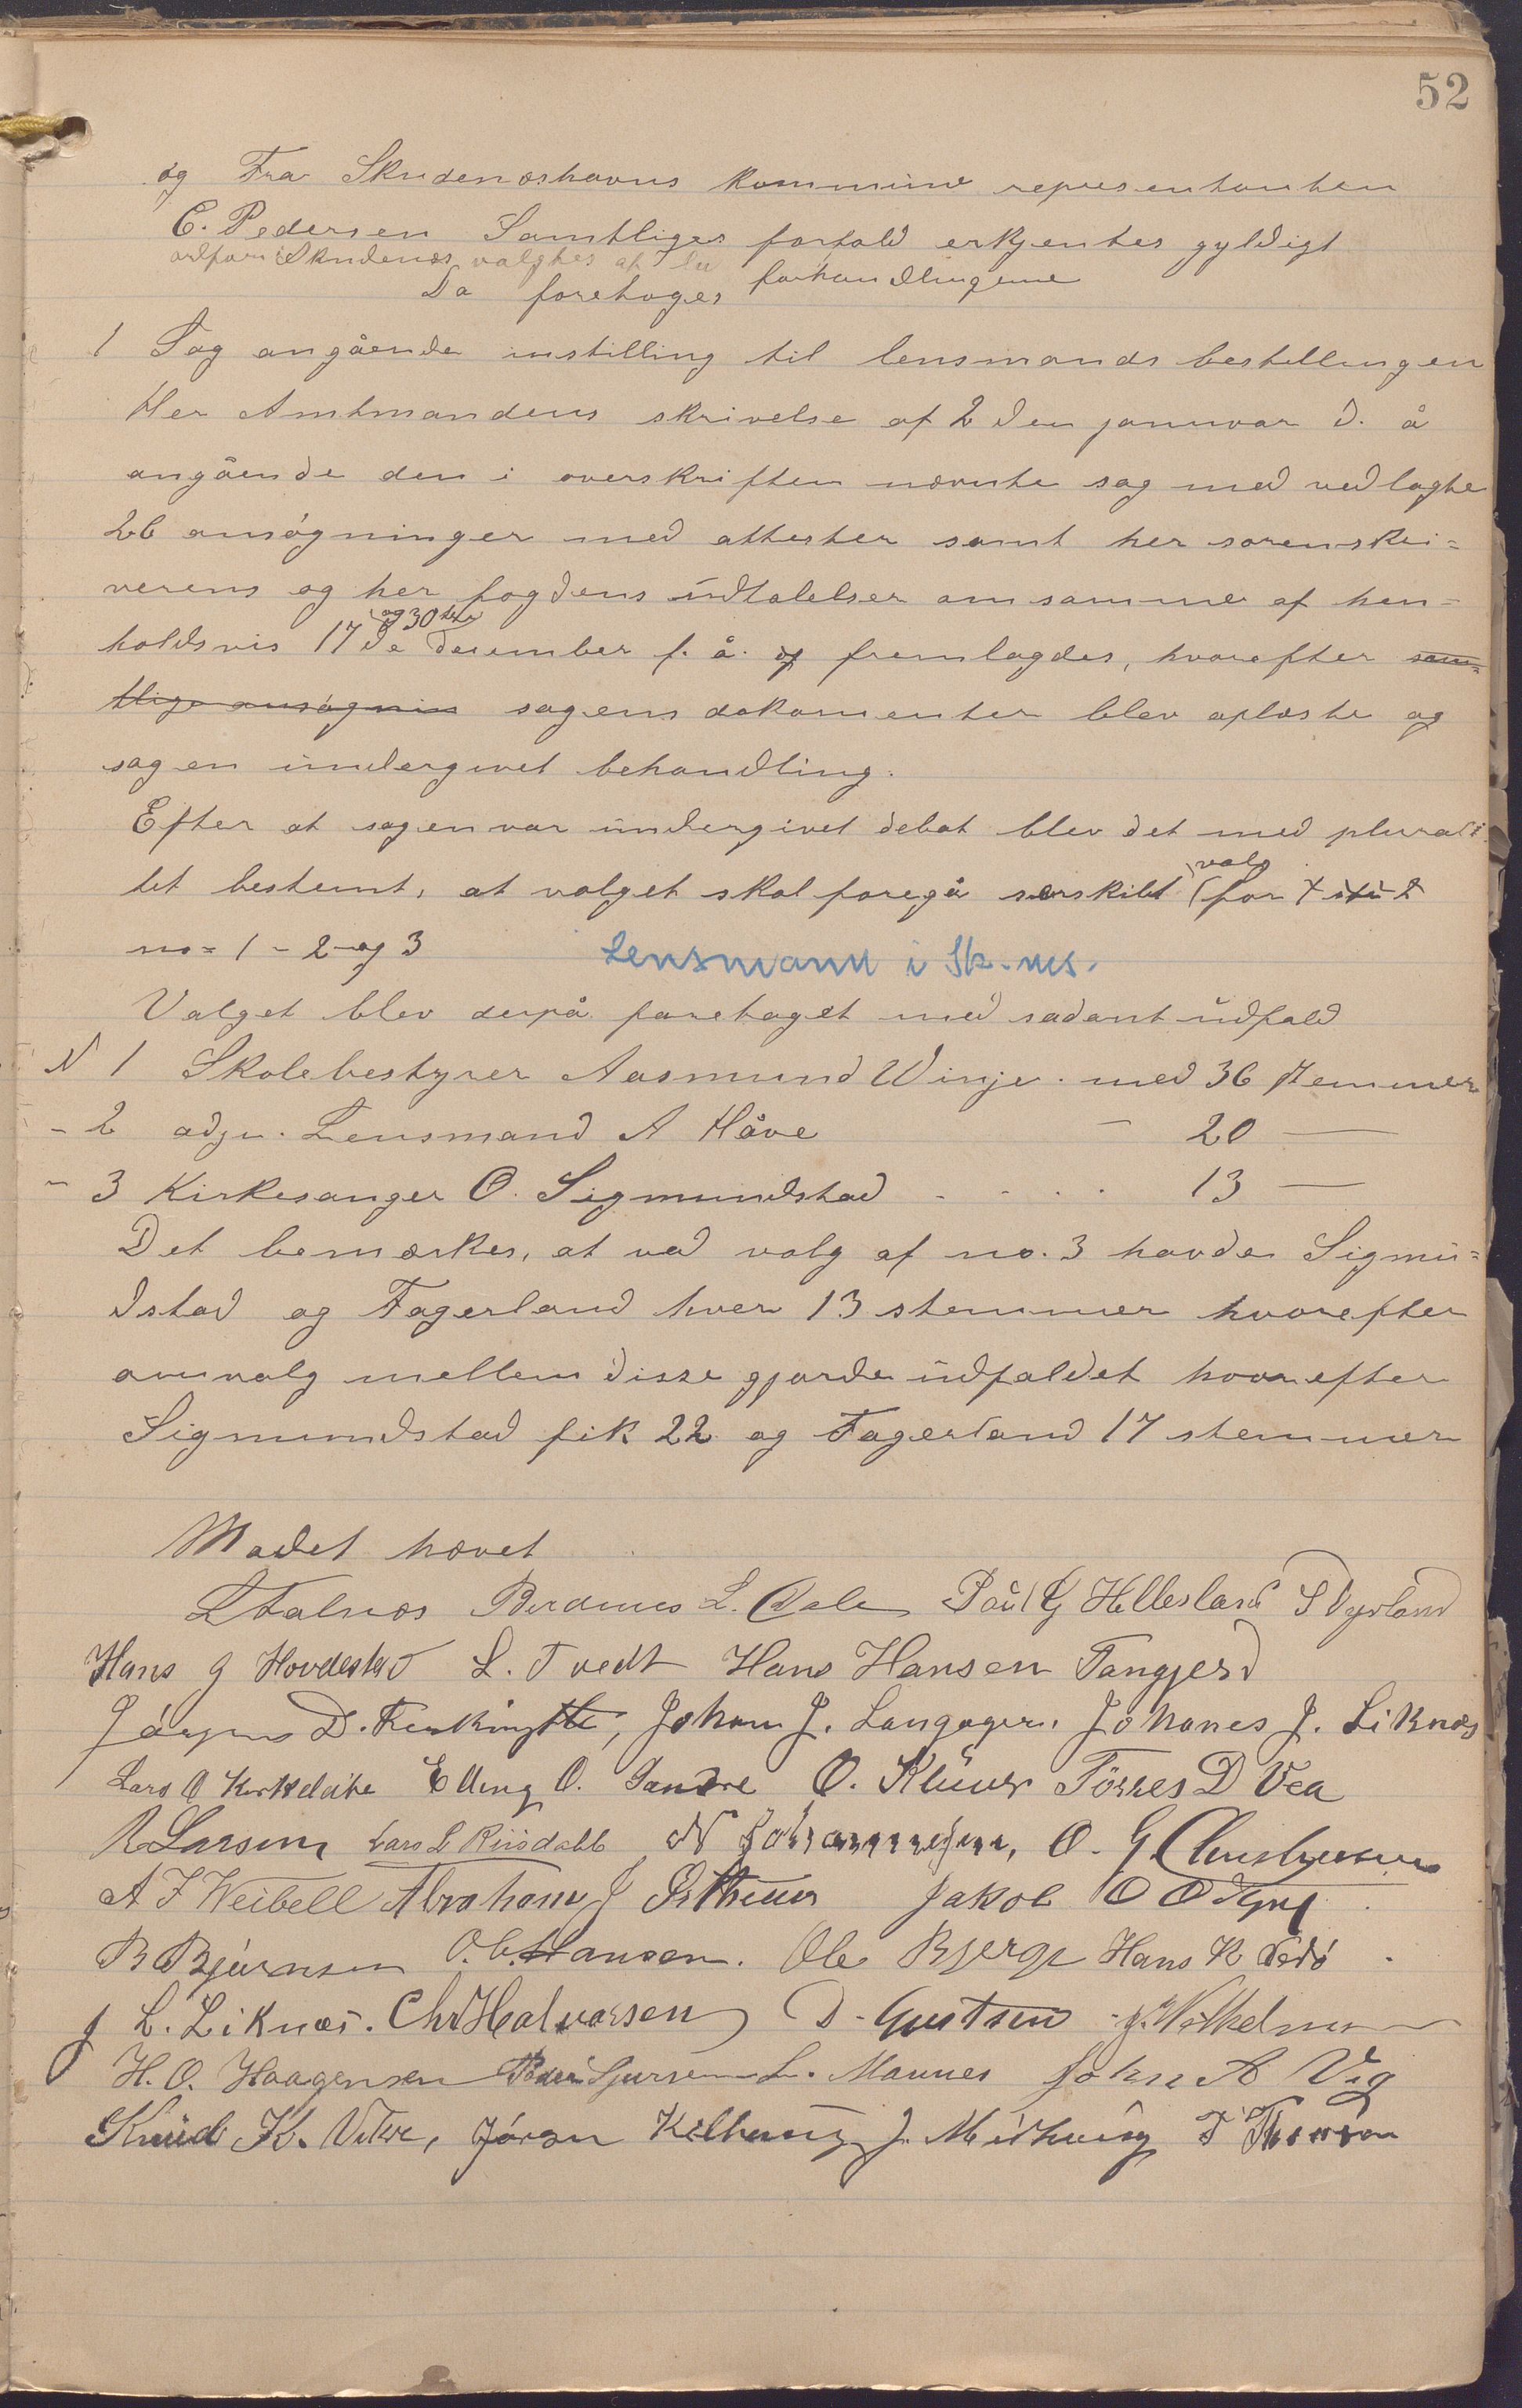 52
og Fra Skudenæshavns kommune representanten
C. Pedersen Samtliges forfald erkjentes gyldigt
ordfører i Skudenæs valgtes at lede forhandlingerne
Da foretoges
1 Sag angående instilling til lensmands bestillingen
Her Amtmandens skrivelse af 2den januar d. å
angående den i overskriften nævnte sag med vedlagte
26 ansøgninger med attester samt her sorenskri=
verens og her fogdens udtalelser om samme af hen=
holdsvis 17de og 30te December f. å. og fremlagdes, hvorefter sam=
tlige ansøgnin sagens dokumenter blev oplæste og
sagen undergivet behandling.
Efter at sagen var undergivet debat blev det med plurali
tet bestemt, at valget skal foregå særskilt valg for
no= 1 - 2 og 3
Lensmann i Sk.nes.
Valget blev derpå foretaget med sadant udfald
N 1 Skolebestyrer Aasmund Winje. med 36 stemmer
- 2 adju. Lensmand A Håve - 20 —
- 3 Kirkesanger O. Sigmundstad . . . . 13 —
Det bemærkes, at ved valg af no. 3 havde Sigmu=
dstad og Fagerland hver 13 stemmer hvorefter
omvalg mellem disse gjorde udfaldet hvorefter
Sigmundstad fik 22 og Fagerland 17 stemmer
Mødet hævet
L Stalnæs L. Dale Paul G Hellesland S Dyrland
Hans J Hovdestad L. Tvedt Hans Hansen Tangjerd
Jørgen D. Johan J. Langåger. Johanes J. Liknæs
Lars O Elling O. Sandve O. Kluver Tørres D Vea
R Larsen Lars L Risdahl N Johannesen, O. G. Christensen
A F Weibell Abraham J Østhuus Jakob O
B Bjørnsen O. C. Hansen. Ole Bjerge Hans K Vedø.
J L. Liknæs. Chr Halvorsen D. Gjertsen J. Wilhelmsen
H. O. Haagensen Peder Sjursen L. Mannes John A Vig
Knud K. Vikre, Jørgen Kolhaug J. Midhaug T Thorsen